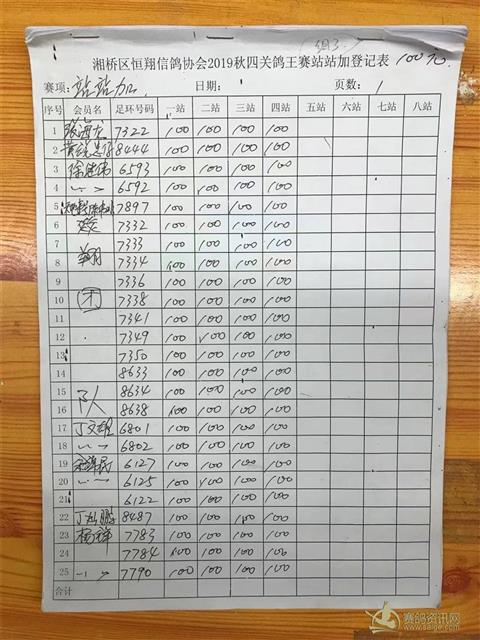 湘桥区恒翔信鸽协会2019秋四关鸽王赛站站加登记表 100元
赛项：站站加 日期： 页数：1
序号 会员名 足环号码 一站 二站 三站 四站 五站 六站 七站 八站
1 7322 100 100 100 100
2 8444 100 100 100 100
3 6593 100 100 100 100
4 〃 6592 100 100 100 100
5 7897 100 100 100 100
6 7332 100 100 100 100
7 7333 100 100 100 100
8 翔 7334 100 100 100 100
9 7336 100 100 100 100
10 7338 100 100 100 100
11 7341 100 100 100 100
12 7349 100 100 100 100
13 7350 100 100 100 100
14 8633 100 100 100 100
15 8634 100 100 100 100
16 人 8638 100 100 100 100
17 丁文雄 6801 100 100 100 100
18 〃 6802 100 100 100 100
19 6127 100 100 100 100
20 〃 6125 100 100 100 100
21 6122 100 100 100 100
22 丁灿鹏 8487 100 100 100 100
23 杨祥 7783 100 100 100 100
24 7784 100 100 100 100
25 〃 7790 100 100 100 100
合计
赛鸽资讯网
www.saige.com